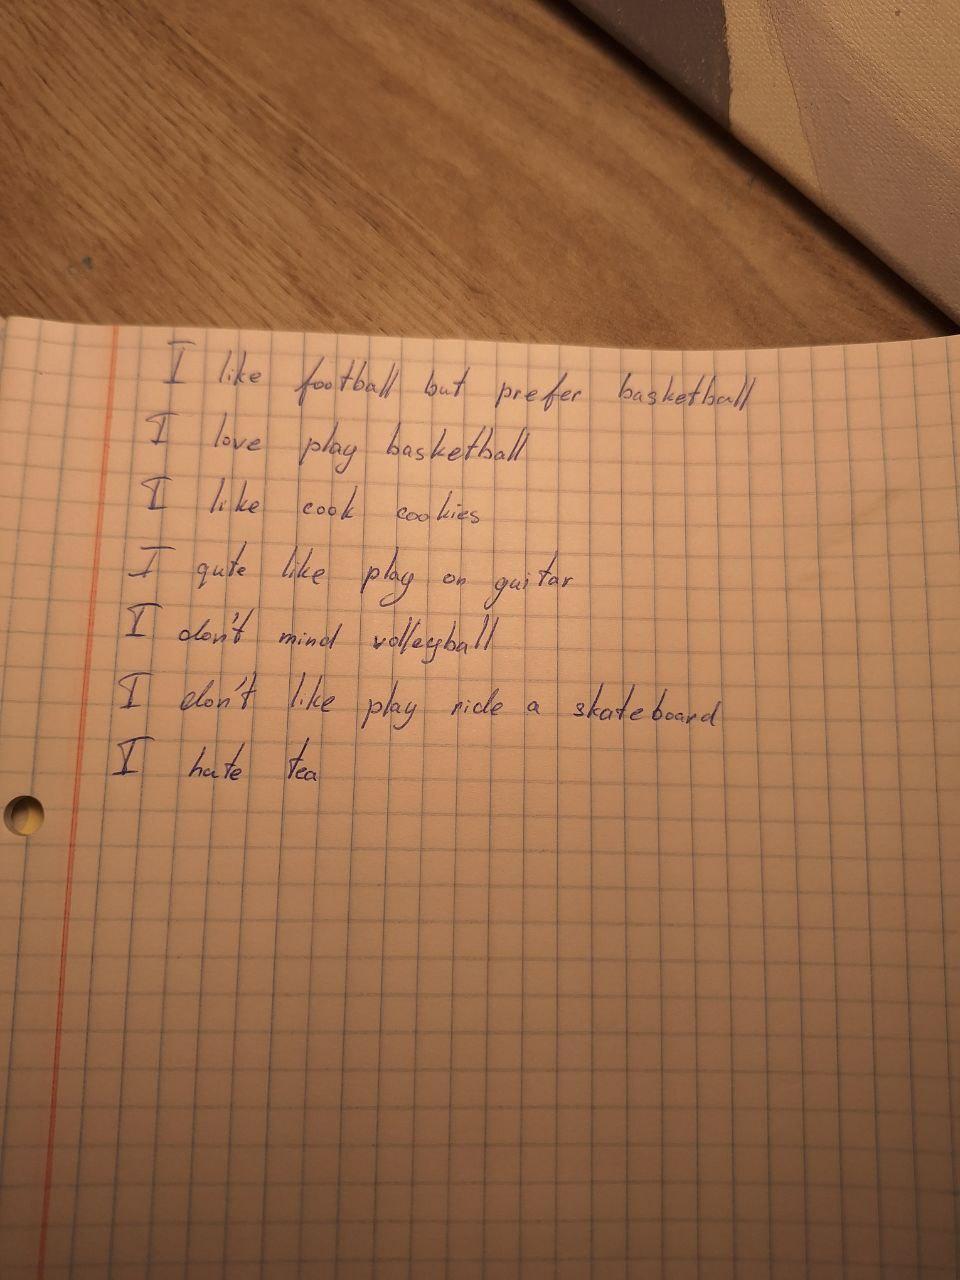 I like football but prefer basketball
I love play basketball
I like cook cookies
I qute like play on guitar
I don't mind volleyball
I don't like play ride a skateboard
I hate tea